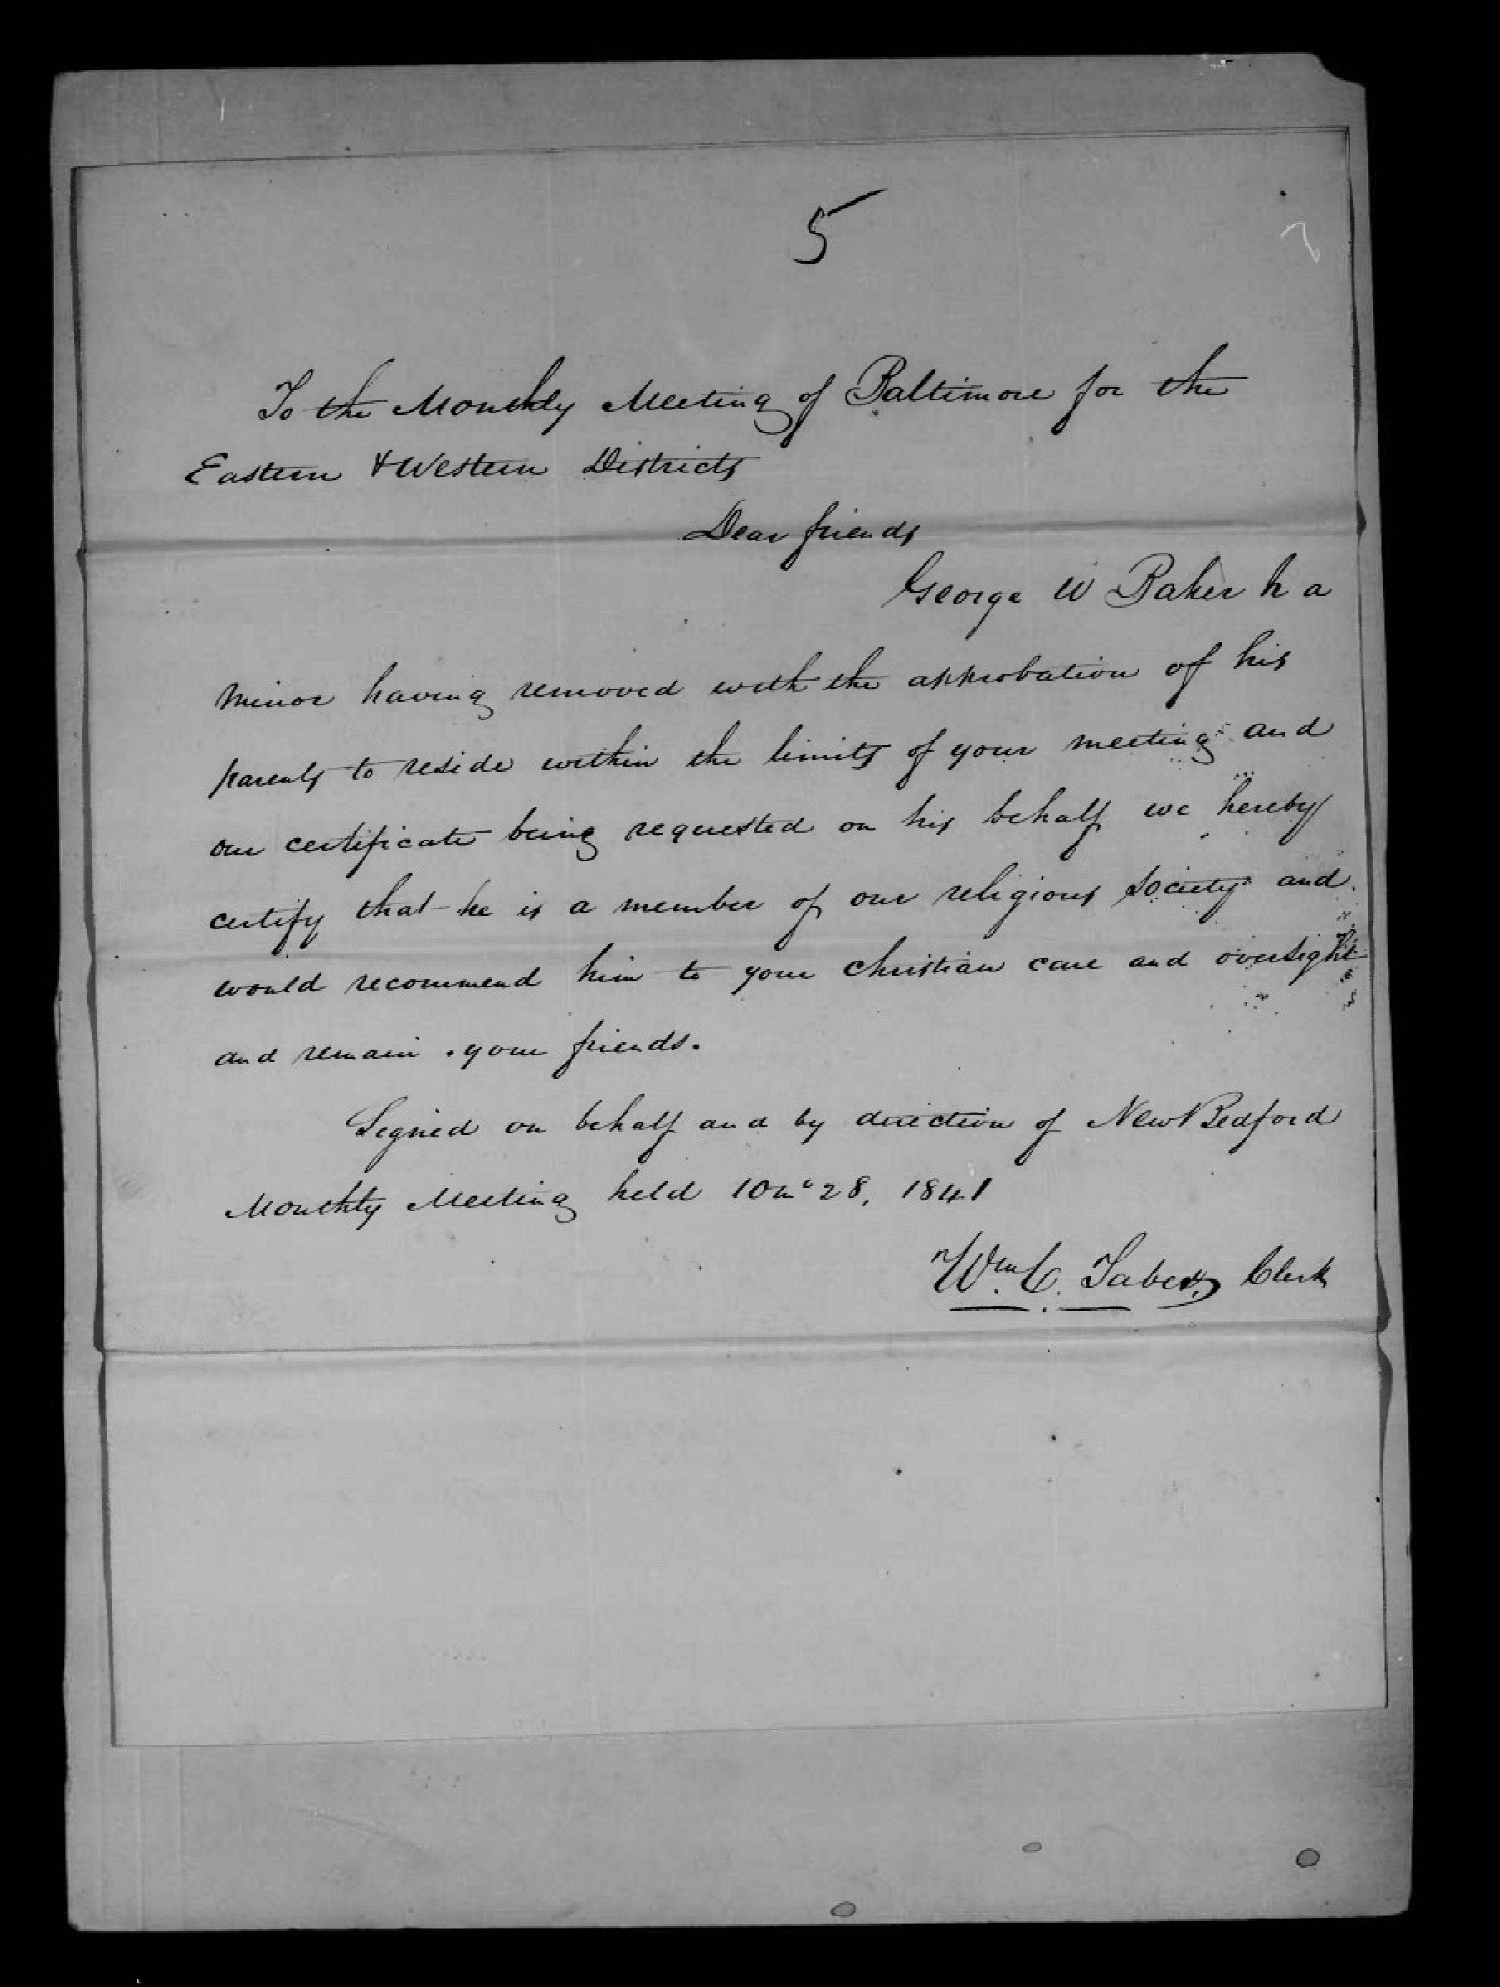 5
To the Monthly Meeting of Baltimore for the
Eastern & Western Districts
Dear friends
George W Baker a
minor having removed with the approbation of his
parents to reside within the limits of your meeting and
our certificate being requested on his behalf we hereby
certify that he is a member of our religious society and
would recommend him to your christian care and oversight
and remain your friends.
Signed on behalf and by direction of New Bedford
Monthly Meeting held 10mo 28, 1841
Wm C. Taber, Clerk